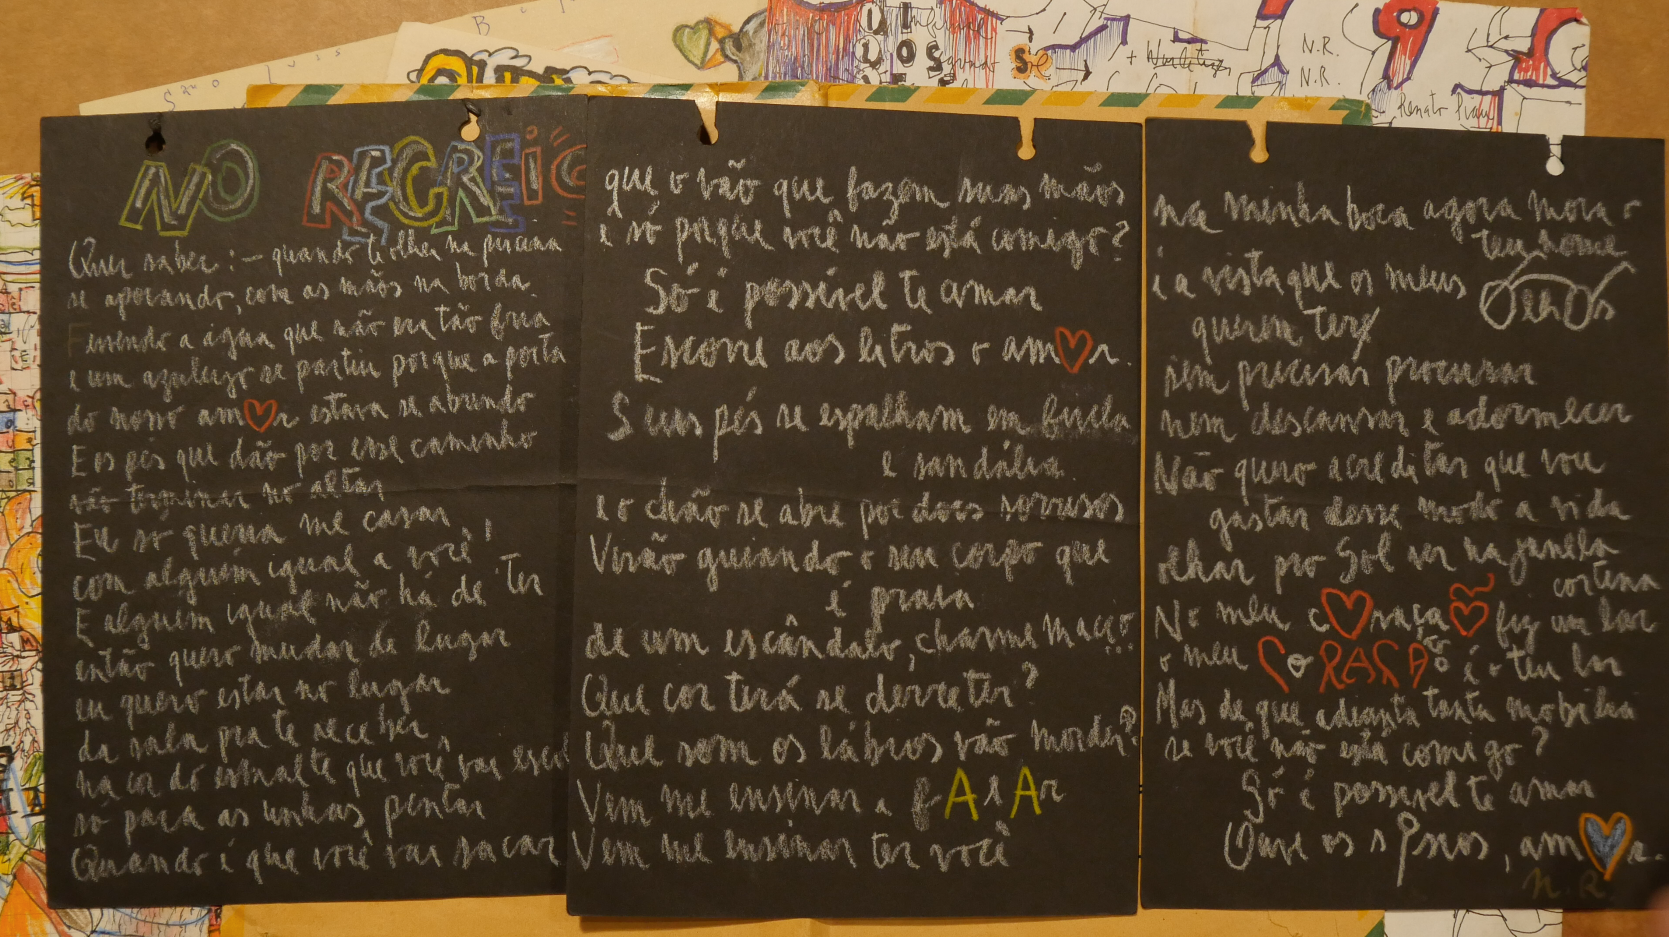 NO RECREIO
Quer saber: – quando te olhei na piscina
se apoiando, com as mãos na borda
Fervendo a água que não era tão fria
e um azulejo se partiu porque a porta
do nosso amor estava se abrindo
E os pés que vão por esse caminho
vão terminar no altar
Eu só queria me casar
com alguém igual a você
E alguém igual não há de ter
então quero mudar de lugar
eu quero estar no lugar
da sala pra te receber
na cor do esmalte que você vai
só para as unhas pintar
Quando é que você vai sacar
que o vão que fazem suas mãos
é só porque você não está comigo?
Só é possível te amar
Escorre aos litros o amor.
Seus pés se espalham em fivela
e sandália
e o chão se abre por dois sorrisos
Virão guiando o seu corpo que
é praia
de um escândalo, charme macio...
Que cor terá se derreter?
Que som os lábios vão morder?
Vem me ensinar a falar
Vem me ensinar ter você
na minha boca agora mora o
teu nome
é a vista que os meus olhos
querem ter
sem precisar procurar
nem descansar e adormecer
Não quero acreditar que vou
gastar desse modo a vida
olhar pro Sol ver na janela
cortina
No meu coração fiz um lar
o meu coração é o teu lar
Mas de que adianta tanta mobília
se você não está comigo?
Só é possível te amar
Ouve os sinos, amor.
N.R.
N.R.
N.R.
Se
9